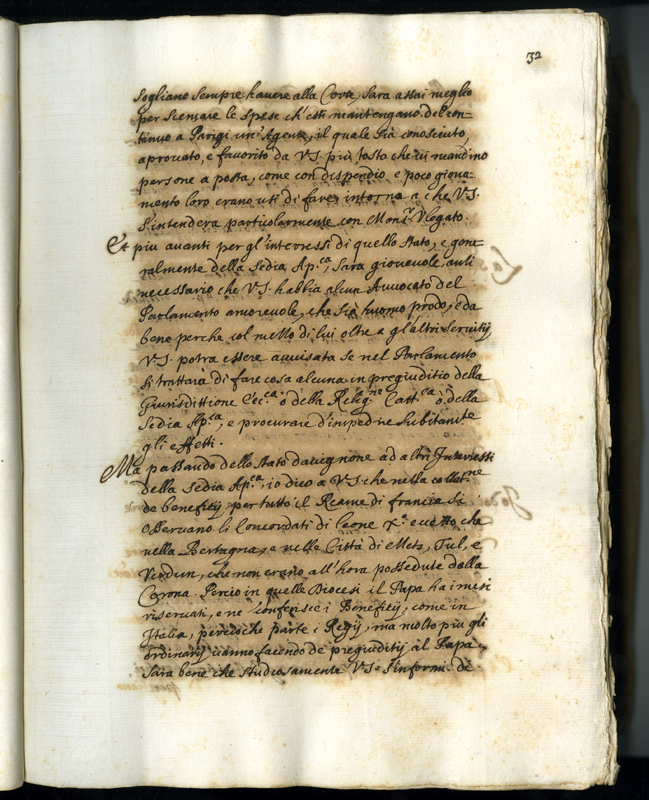 32
sogliano sempre havere alla Corte, sara assai meglio
per scemare le spese ch'essi mantengano del con-
tinuo a Parigi un'Agente, il quale sia conosciuto,
aprovato, e favorito da V.S. più tosto che vi mandino
persone a posta, come con dispendio e poco giova-
mento loro erano usi di fare, intorno a che V.S.
s'intenderà particolarmente con Mons.r Vlegato.
Et piu avanti per gl'interessi di quello stato, e gene-
ralmente della Sedia Ap.ca, sara giovevole, anti
necessario che V.S. habbia alcun Avvocato del
Parlamento amorevole, che sia huomo prodo, e da
bene perche col mezzo di lui oltre a gl'altri servitij
V.S. potra essere avvisata se nel Parlamento
si trattarà di fare cosa alcuna in pregiuditio della
Giurisdittione Ecc.ca ò della Relig.ne Catt.ca ò della
Sedia Ap.ca, e procurare d'impedire subitam.te
gli effetti.
Ma passando dello stato davignone ad altri Interessi
della Sedia Ap.ca, io dico a V.S. che nella collat.ne
de beneficij per tutto il Reame di francia si
osservano li Concordati di leone X.o eccetto che
nella Bertagna, e nelle Città di Mets, Tul, e
Verdun, che non erano all'hora possedute dalla
Corona. Perciò in quelle Diocesi il Papa ha i mesi
riservati, e ne conferisce i Beneficij, come in
Italia, percioche parte i Regij, ma molto piu gli
ordinarij vanno facendo de pregiuditij al Papa,
sara bene che studiosamente V.S. s'informi di